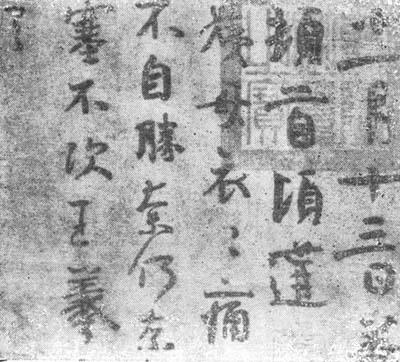 一月十三日羲
頓首頃遘
姨母哀〻痛
不自勝奈何奈
塞不次王羲